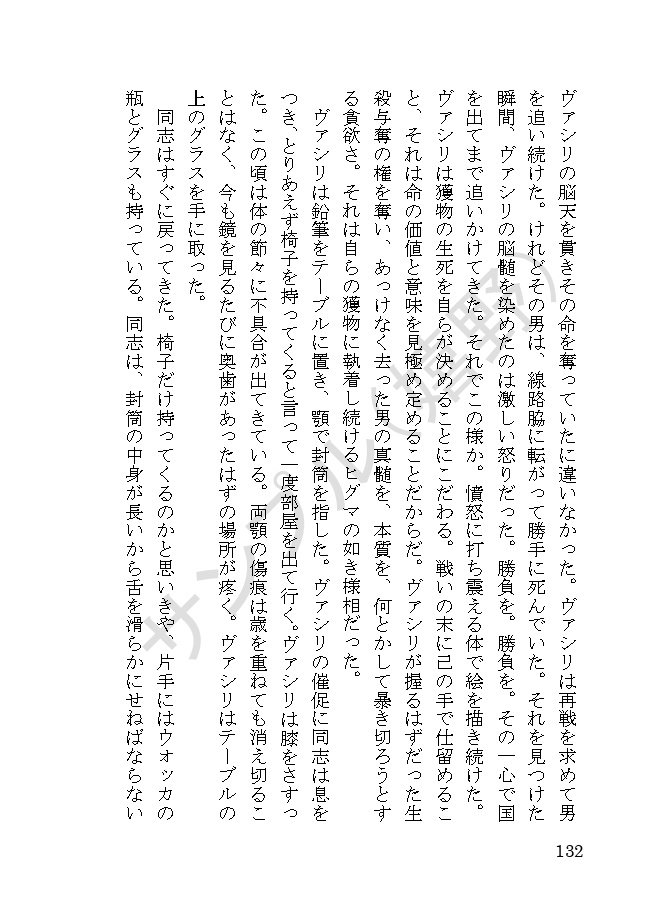 ヴァシリの脳天を貫きその命を奪っていたに違いなかった。ヴァシリは再戦を求めて男
を追い続けた。けれどその男は、線路脇に転がって勝手に死んでいた。それを見つけた
瞬間、ヴァシリの脳髄を染めたのは激しい怒りだった。勝負を。勝負を。その一心で国
を出てまで追いかけてきた。それでこの様か。憤怒に打ち震える体で絵を描き続けた。
ヴァシリは獲物の生死を自らが決めることにこだわる。戦いの末に己の手で仕留めるこ
と、それは命の価値と意味を見極め定めることだからだ。ヴァシリが握るはずだった生
殺与奪の権を奪い、あっけなく去った男の真髄を、本質を、何とかして暴き切ろうとす
る貪欲さ。それは自らの獲物に執着し続けるヒグマの如き様相だった。
ヴァシリは鉛筆をテーブルに置き、顎で封筒を指した。ヴァシリの催促に同志は息を
つき、とりあえず椅子を持ってくると言って一度部屋を出て行く。ヴァシリは膝をさすっ
た。この頃は体の節々に不具合が出てきている。両顎の傷痕は歳を重ねても消え切るこ
とはなく、今も鏡を見るたびに奥歯があったはずの場所が疼く。ヴァシリはテーブルの
上のグラスを手に取った。
同志はすぐに戻ってきた。椅子だけ持ってくるのかと思いきや、片手にはウオッカの
瓶とグラスも持っている。同志は、封筒の中身が長いから舌を滑らかにせねばならない
サンプル(嬉野)
132